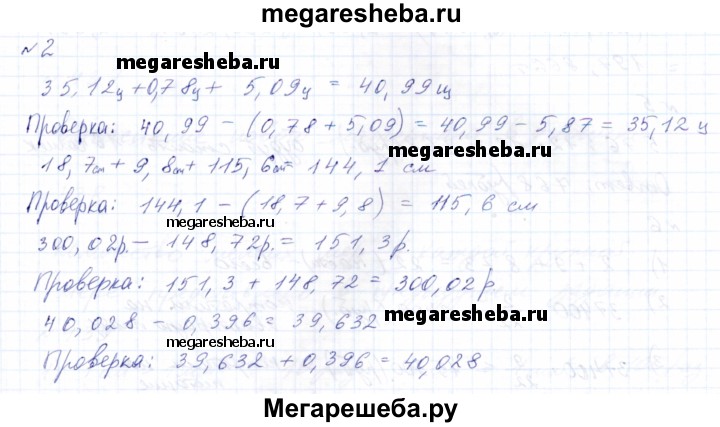 megaresheba.ru
№2
megaresheba.ru
35,12ц + 0,78ц + 5,09ц = 40,99ц
Проверка: 40,99 - (0,78 + 5,09) = 40,99 - 5,87 = 35,12 ц
megaresheba.ru
18,7см + 9,8см + 115,6см = 144,1 см
Проверка: 144,1 - (18,7 + 9,8) = 115,6 см
megaresheba.ru
300,02р. - 148,72р. = 151,3р.
Проверка: 151,3 + 148,72 = 300,02р.
40,028 - 0,396 = 39,632
megaresheba.ru
Проверка: 39,632 + 0,396 = 40,028
Мегарешеба.ру